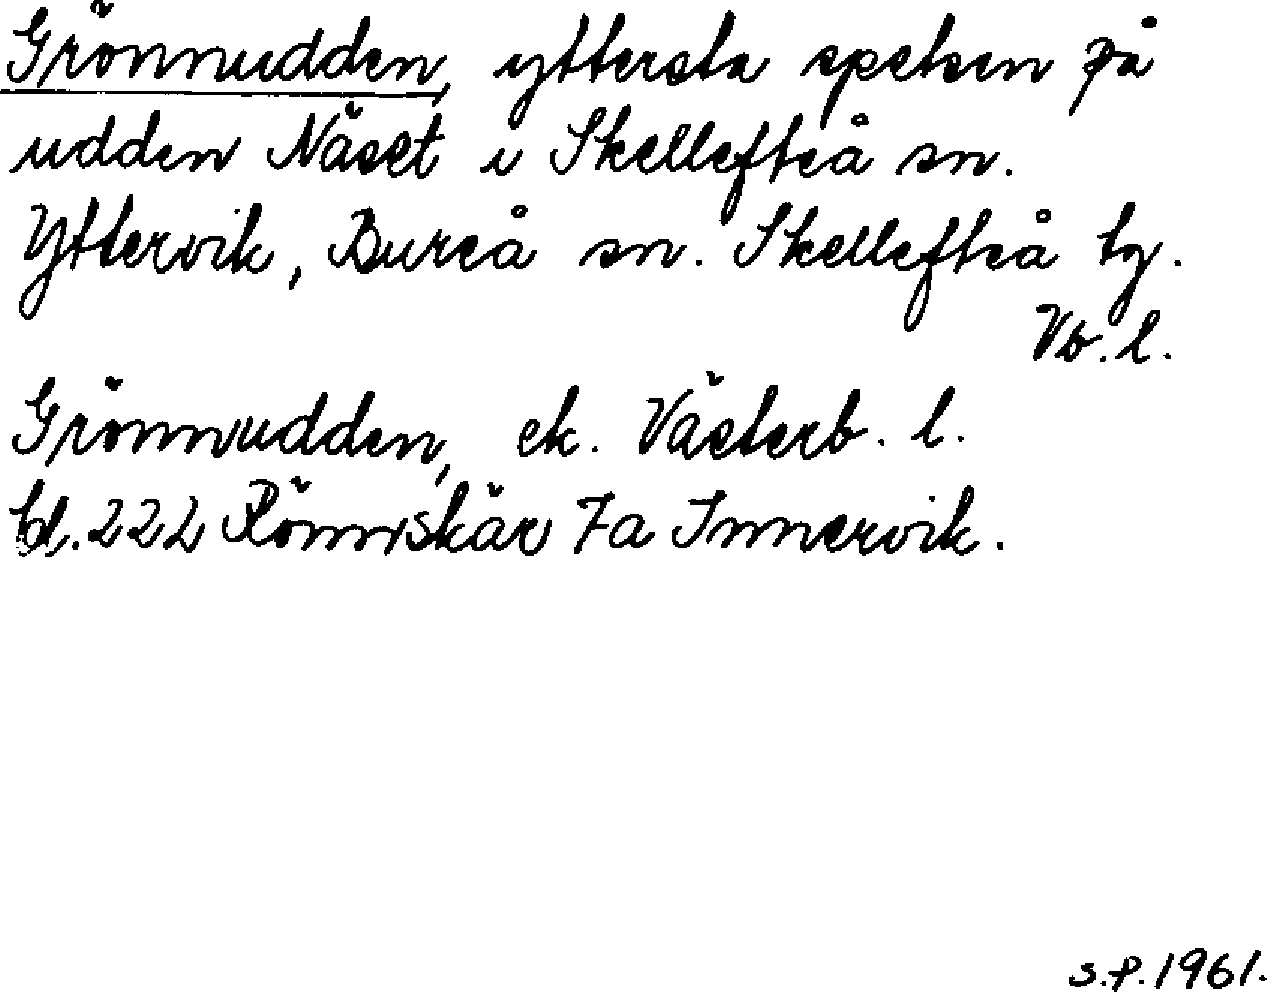 Grönnudden, yttersta spetsen på
udden Näset i Skellefteå sn.
Yttervik, Bureå sn. Skellefteå tg.
Vb. l.
Grönnudden, ek. Västerb. l.
bl. 222 Rönnskär 7a Innervik.
S.P. 1961.